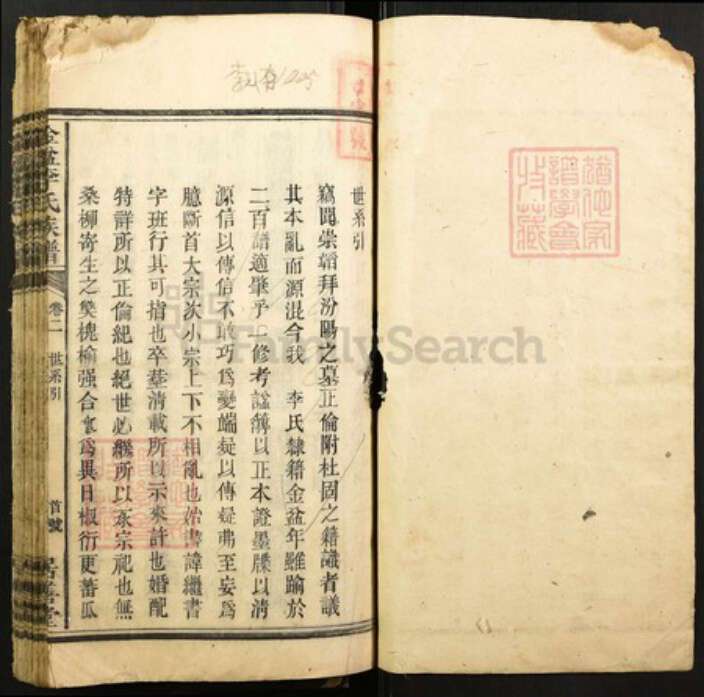 世系引
竊聞崇韜拜汾陽之墓正倫附杜固之籍識者議
其本亂而源混今我 李氏隸籍金盆年雖踰於
二百譜適肇乎一修考諡簿以正本證墨牒以清
源信以傳信不敢巧為變端疑以傳疑弗至妄為
臆斷首大宗次小宗上下不相亂也始書諱繼書
字班行其可指也卒塟清載所以示來許也婚配
特詳所以正倫紀也絕世必繼所以永宗祀也無
桑柳寄生之
槐榆强合
為異日椒衍更蕃瓜
金盆李氏族譜
卷二 世系引
首號
居善堂
譜學會
FamilySearch